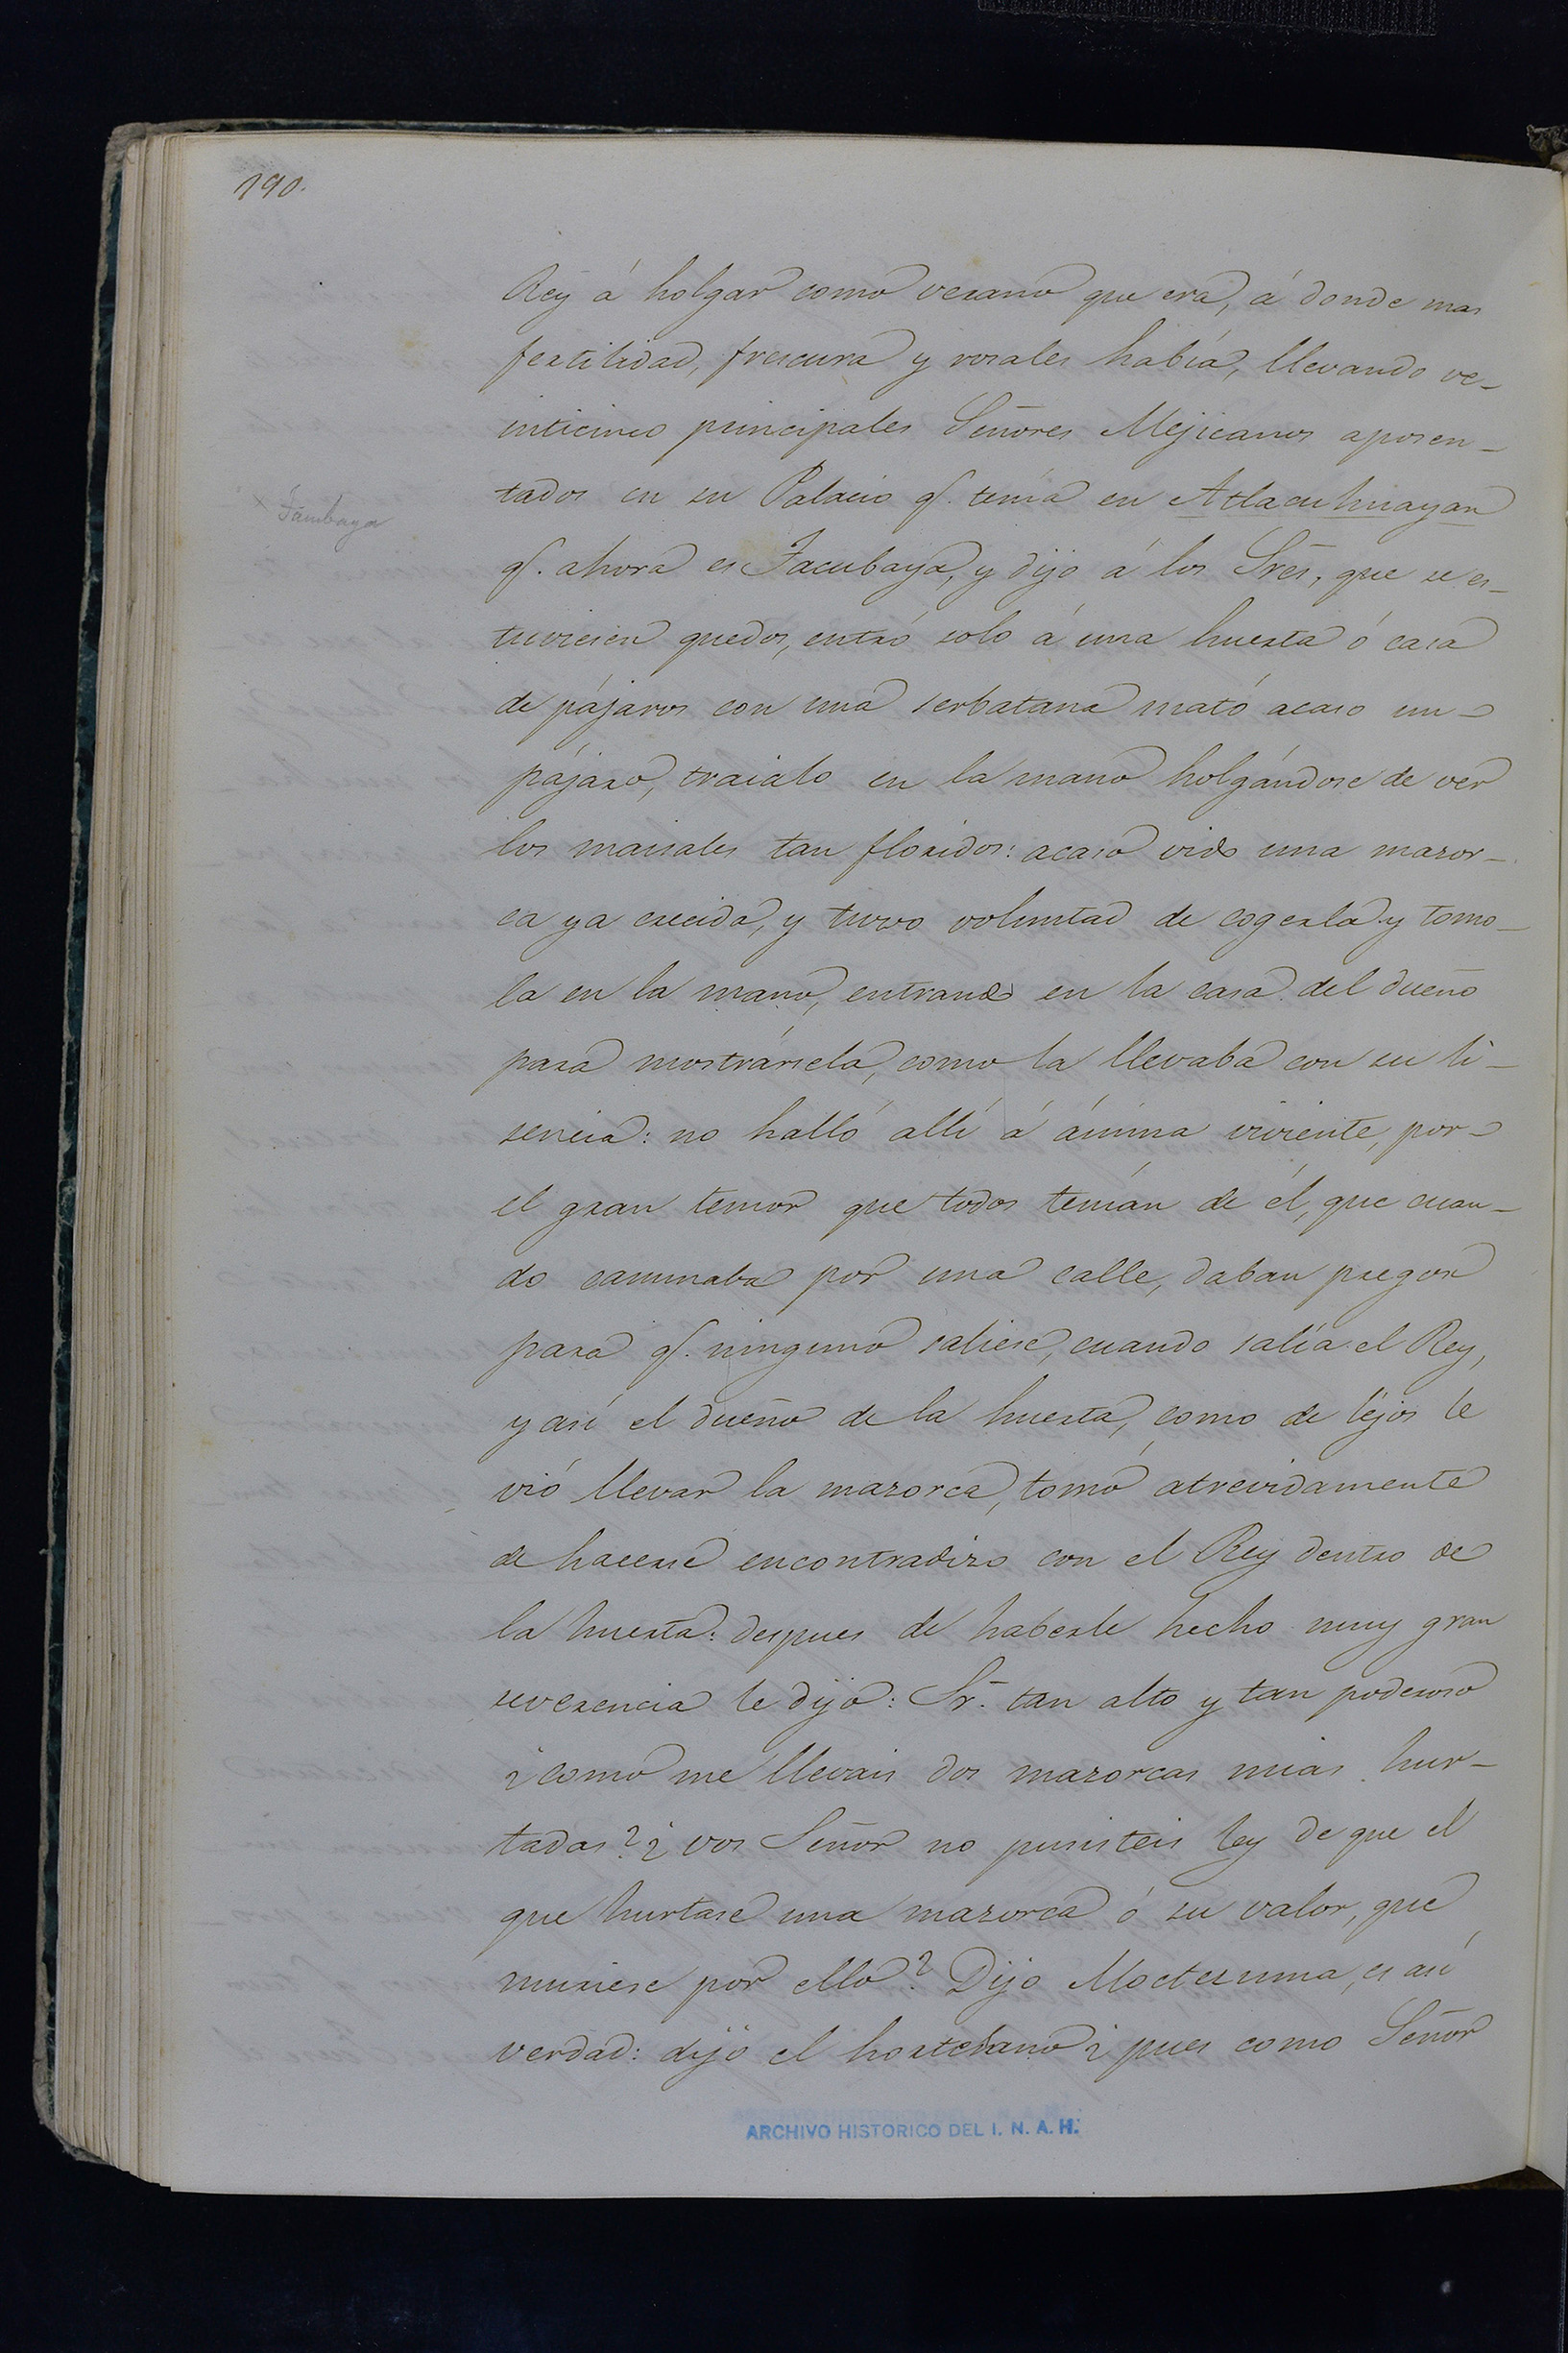 190.
Rey á holgar como verano que era, á donde mas
fertilidad, frescura y rosales habia, llevando ve-
inticinco principales Señores Mejicanos aposen-
tados en su Palacio q. tenia en Atlacuhuayan
× Tambaya
q. ahora es Tacubaya, y dijo á los Sres, que se es-
tuviesen quedos, entró solo á una huerta ó casa
de pájaros con una serbatana mató acaso un
pájaro, traialo en la mano holgándose de ver
los maisales tan floridos: acaso vido una mazor-
ca ya crecida, y tuvo voluntad de cogerla y tomo-
la en la mano, entrando en la casa del dueño
para mostrársela, como la llevaba con su li-
sencia: no halló allí á ánima viviente, por
el gran temor que todos tenían de él, que cuan-
do caminaba por una calle, daban pregon
para q. ninguno saliese, cuando salía el Rey,
y asi el dueño de la huerta, como de léjos le
vió llevar la mazorca, tomó atrevidamente
de hacerse encontradizo con el Rey dentro de
la huerta: despues de haberle hecho muy gran
reverencia le dijo: Sr. tan alto y tan poderoso
¿como me llevais dos mazorcas mias hur-
tadas? ¿vos Señor no pusisteis ley de que el
que hurtase una mazorca ó su valor, que
muriese por ello? Dijo Moctezuma, es asi
verdad: dijo el hortelano ¿pues como Señor
ARCHIVO HISTORICO DEL I. N. A. H.